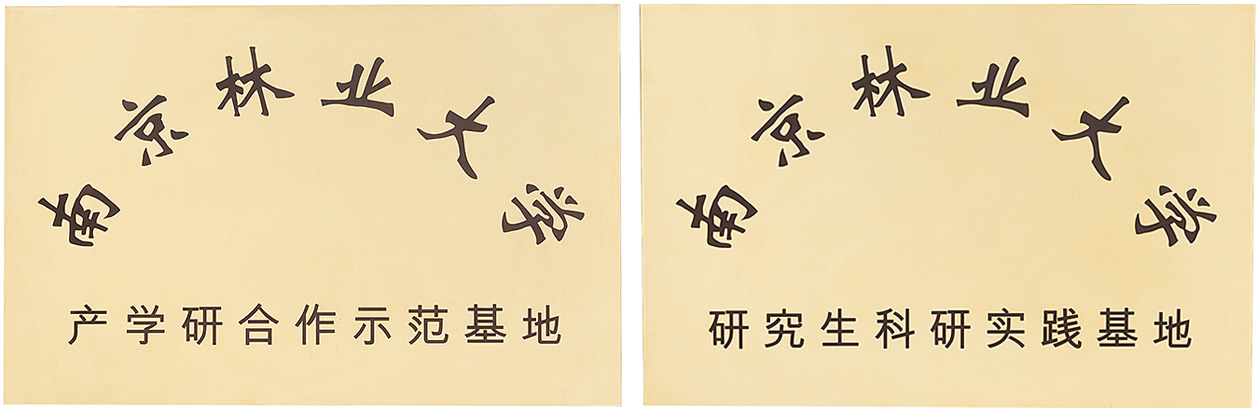 南京林业大学
产学研合作示范基地
南京林业大学
研究生科研实践基地